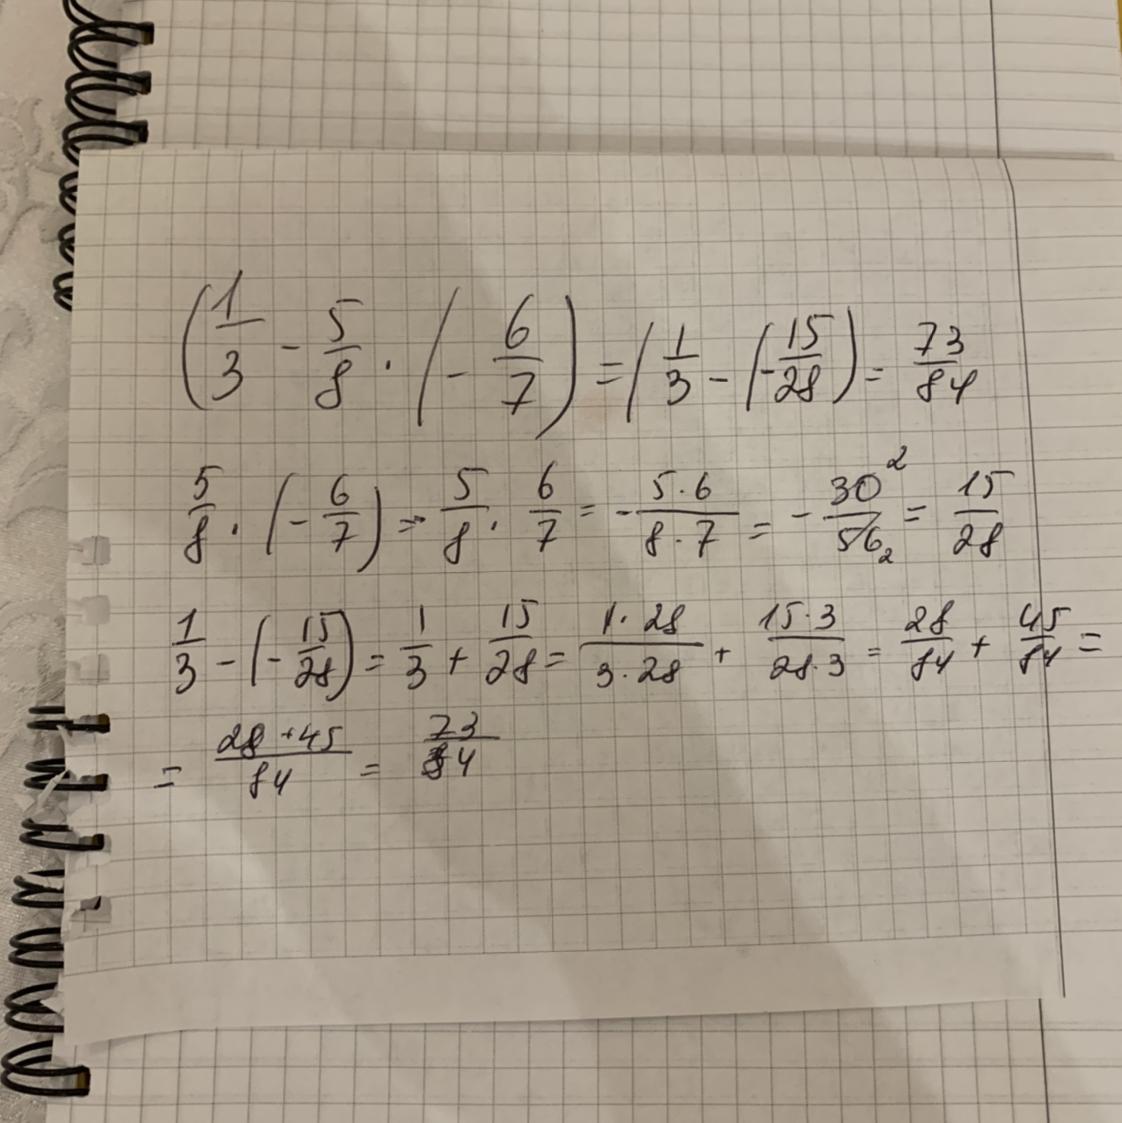 (1/3 - 5/8 · (- 6/7) = (1/3 - (-15/28) = 73/84
5/8 · (- 6/7) = 5/8 · 6/7 = - 5·6/8·7 = - 30²/56₂ = 15/28
1/3 - (- 15/28) = 1/3 + 15/28 = 1·28/3·28 + 15·3/28·3 = 28/84 + 45/84 =
= 28+45/84 = 73/84